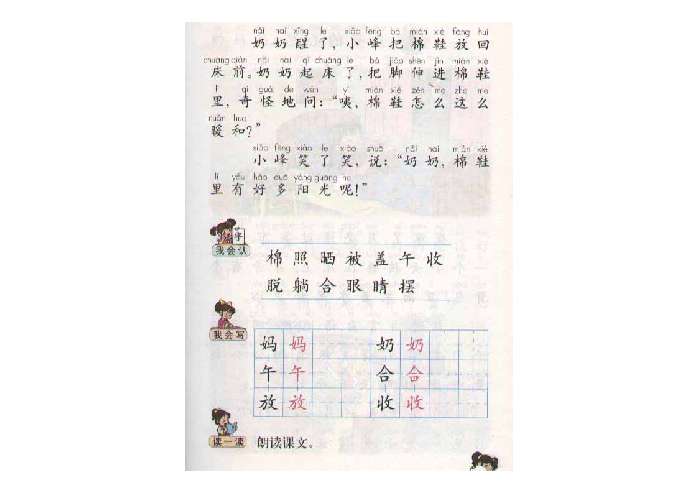 nǎi nai xǐng le xiǎo fēng bǎ mián xié fàng huí
奶奶醒了,小峰把棉鞋放回
chuáng qián nǎi nai qǐ chuáng le bǎ jiǎo shēn jìn mián xié
床前。奶奶起床了,把脚伸进棉鞋
lǐ qí guài de wèn yí mián xié zěn me zhè me
里,奇怪地问:“咦,棉鞋怎么这么
nuǎn huo
暖和?”
xiǎo fēng xiào le xiào shuō nǎi nai mián xié
小峰笑了笑,说:“奶奶,棉鞋
lǐ yǒu hǎo duō yáng guāng ne
里有好多阳光呢!”
我会认
棉照晒被盖午收
脱躺合眼睛摆
我会写
妈妈 奶奶
午午 合合
放放 收收
读一读 朗读课文。